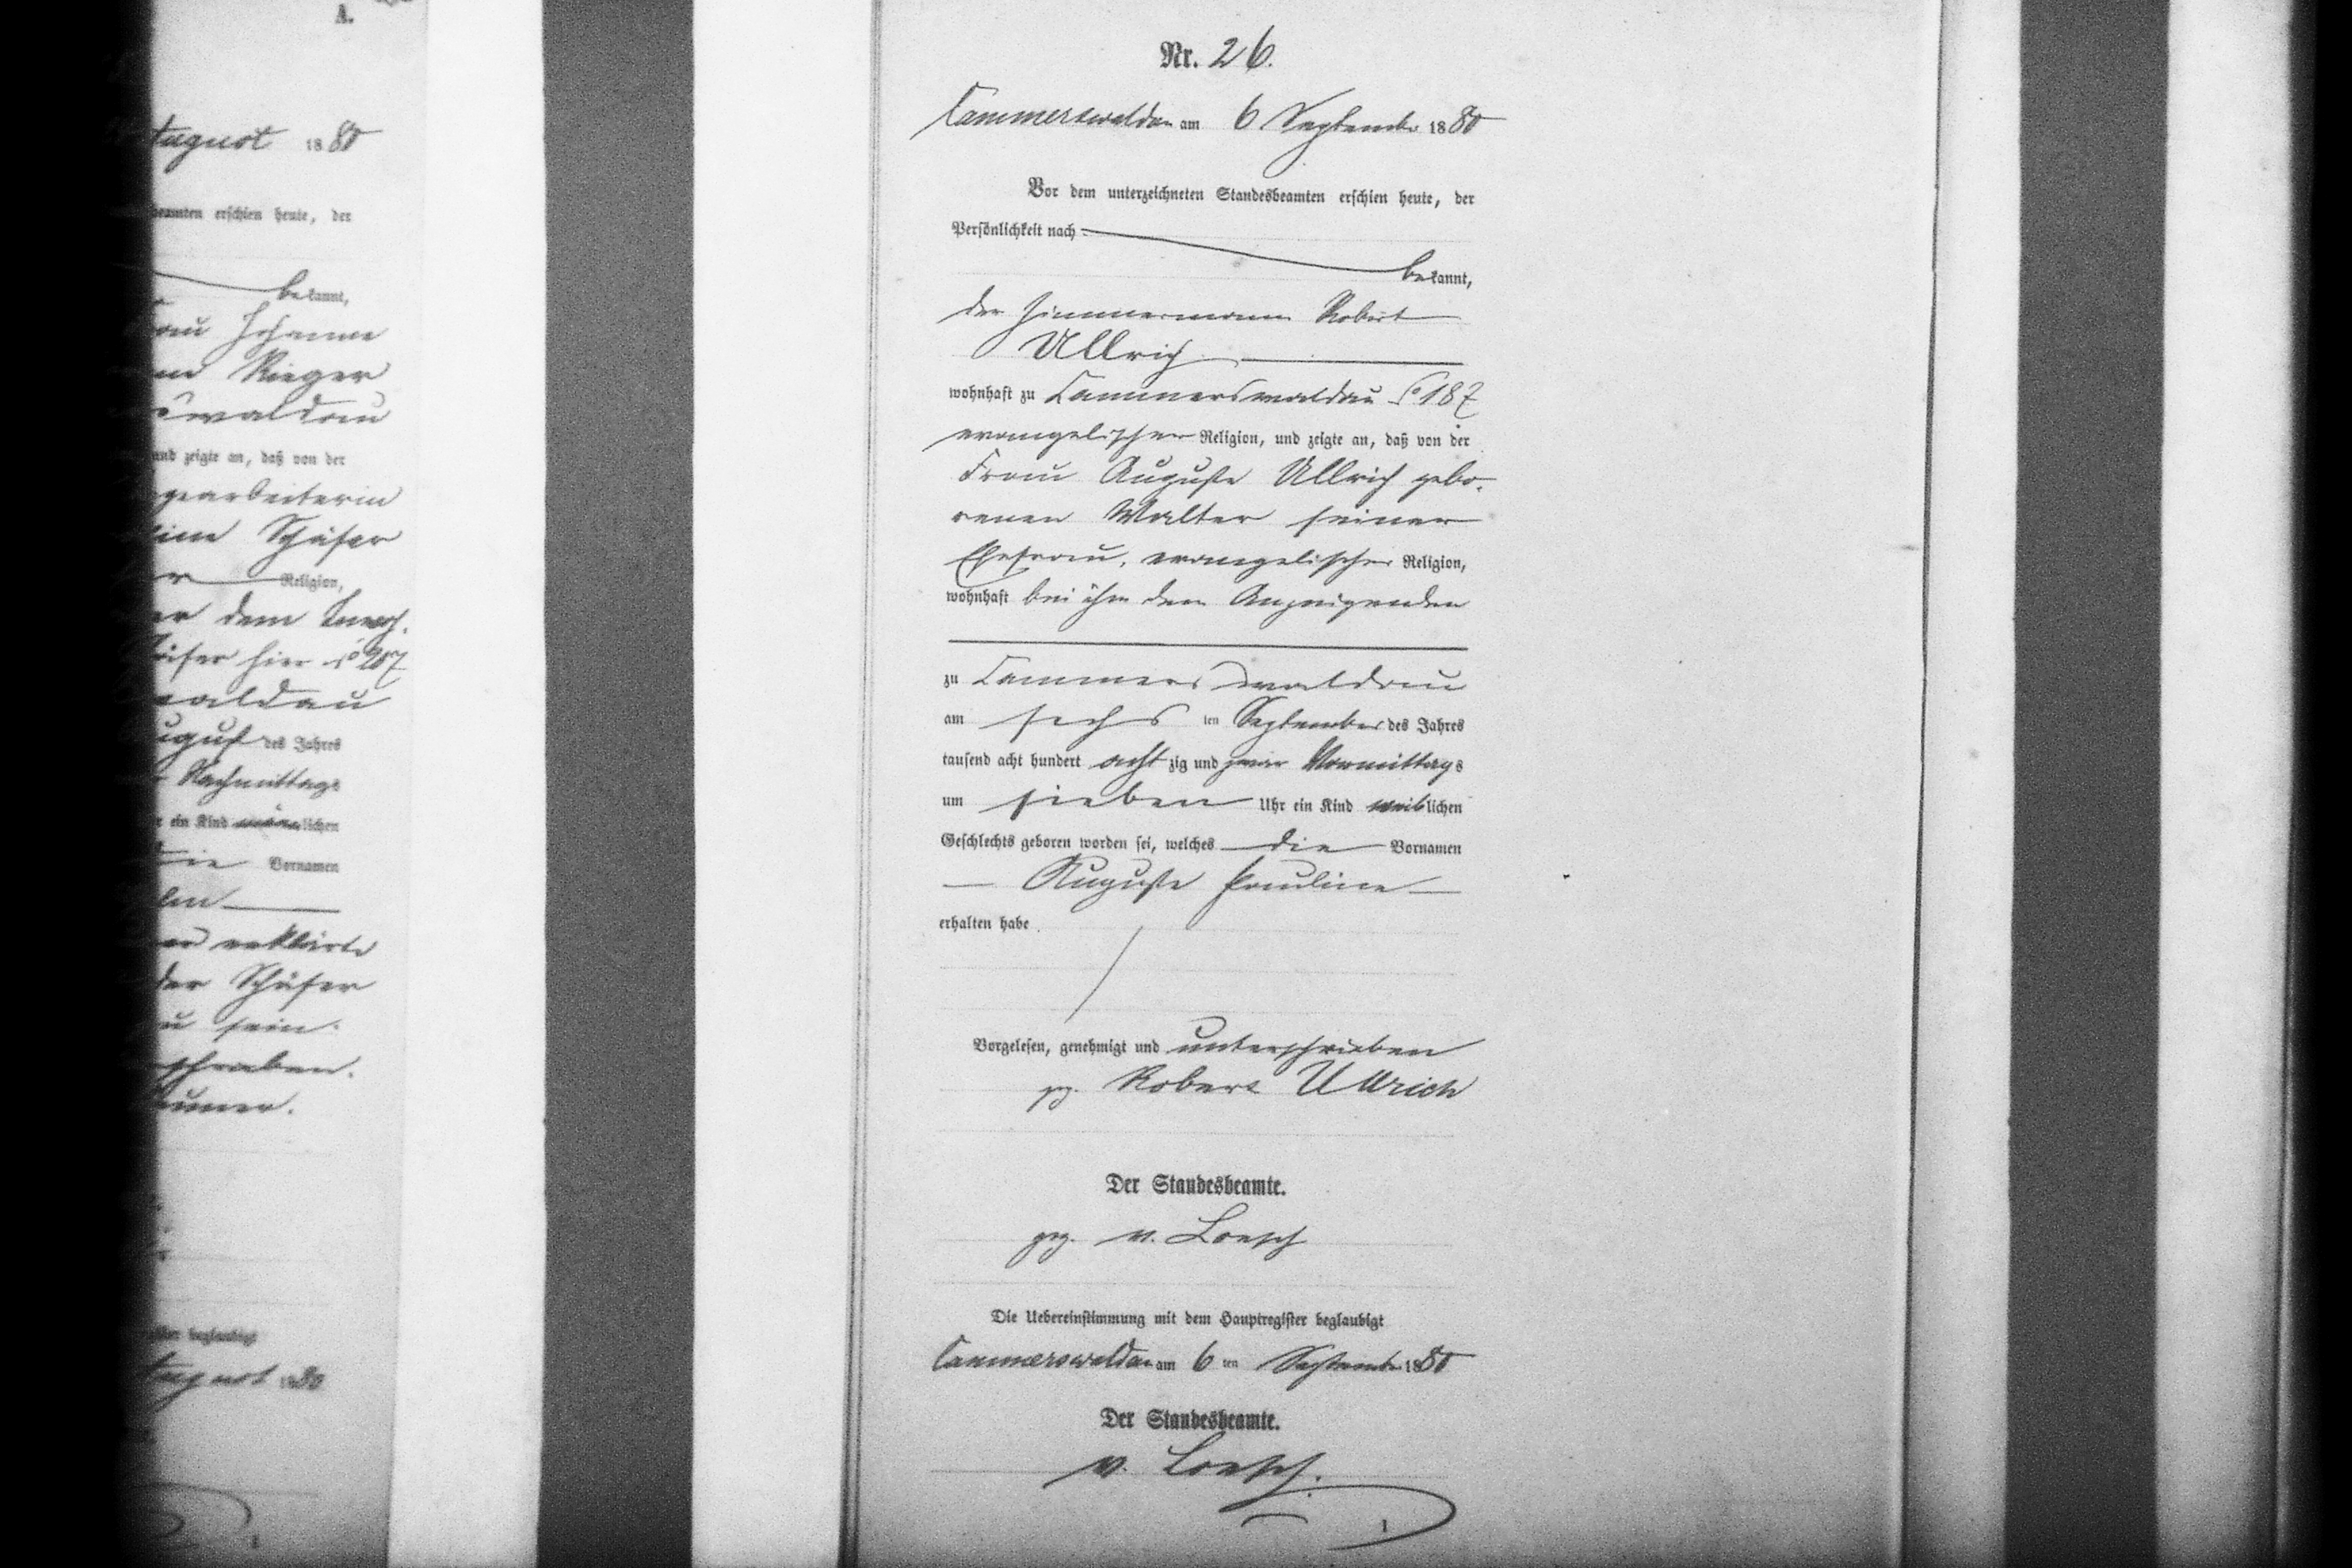 A.
August 1880
beamten erschien heute, der
bekannt,
Frau Johanne
Rieger
waldau
und zeigte an, daß von der
gearbeiterin
Schäfer
Religion,
dem Inwoh.
hier No 207
waldau
August des Jahres
Nachmittags
ein Kind männlichen
die Vornamen
erklärte
der Schäfer
zu sein.
beglaubigt
August 1880
Nr. 26.
Cammerswaldau am 6 September 1880
Vor dem unterzeichneten Standesbeamten erschien heute, der
Persönlichkeit nach
bekannt,
der Zimmermann Robert
Ullrich
wohnhaft zu Cammerswaldau No 187
evangelischer Religion, und zeigte an, daß von der
Frau Auguste Ullrich gebo-
renen Walter seiner
Ehefrau, evangelischer Religion,
wohnhaft bei ihm dem Anzeigenden
zu Cammerswaldau
am sechsten September des Jahres
tausend acht hundert achtzig und zwar Vormittags
um sieben Uhr ein Kind weiblichen
Geschlechts geboren worden sei, welches die Vornamen
Auguste Pauline
erhalten habe.
Vorgelesen, genehmigt und unterschrieben
gz. Robert Ullrich
Der Standesbeamte.
gez. v. Loesch
Die Uebereinstimmung mit dem Hauptregister beglaubigt
Cammerswaldau am 6 ten September 1880
Der Standesbeamte.
v. Loesch.